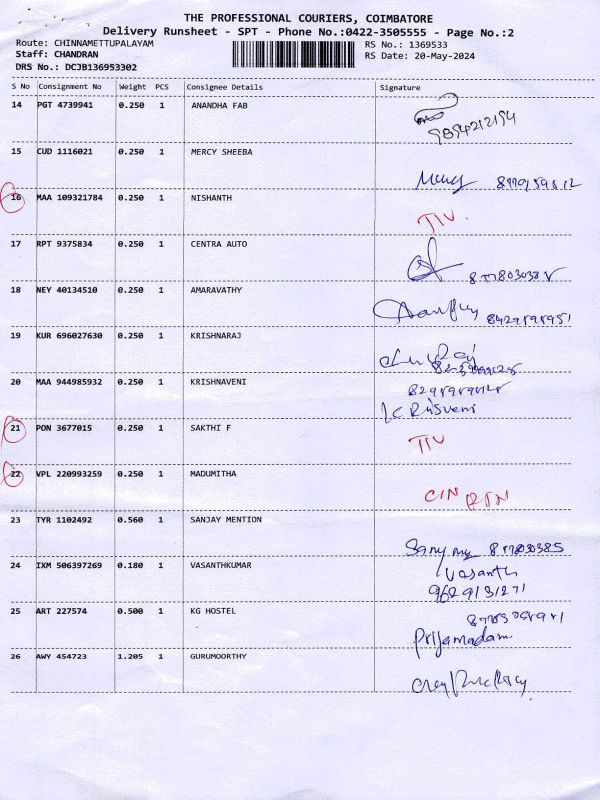 THE PROFESSIONAL COURIERS, COIMBATORE
Delivery Runsheet - SPT - Phone No.:0422-3505555 - Page No.:2
Route: CHINNAMETTUPALAYAM RS No.: 1369533
Staff: CHANDRAN RS Date: 20-May-2024
DRS No.: DCJB136953302
S No Consignment No Weight PCS Consignee Details Signature
14 PGT 4739941 0.250 1 ANANDHA FAB
9894212194
15 CUD 1116021 0.250 1 MERCY SHEEBA
Mercy
16 MAA 109321784 0.250 1 NISHANTH
TIV.
17 RPT 9375834 0.250 1 CENTRA AUTO
18 NEY 40134510 0.250 1 AMARAVATHY
19 KUR 696027630 0.250 1 KRISHNARAJ
20 MAA 944985932 0.250 1 KRISHNAVENI
21 PON 3677015 0.250 1 SAKTHI F
TIV
22 VPL 220993259 0.250 1 MADUMITHA
CIN RTN
23 TYR 1102492 0.560 1 SANJAY MENTION
24 IXM 506397269 0.180 1 VASANTHKUMAR
Vasanth
9629131271
25 ART 227574 0.500 1 KG HOSTEL
Priyamadam
26 AWY 454723 1.205 1 GURUMOORTHY